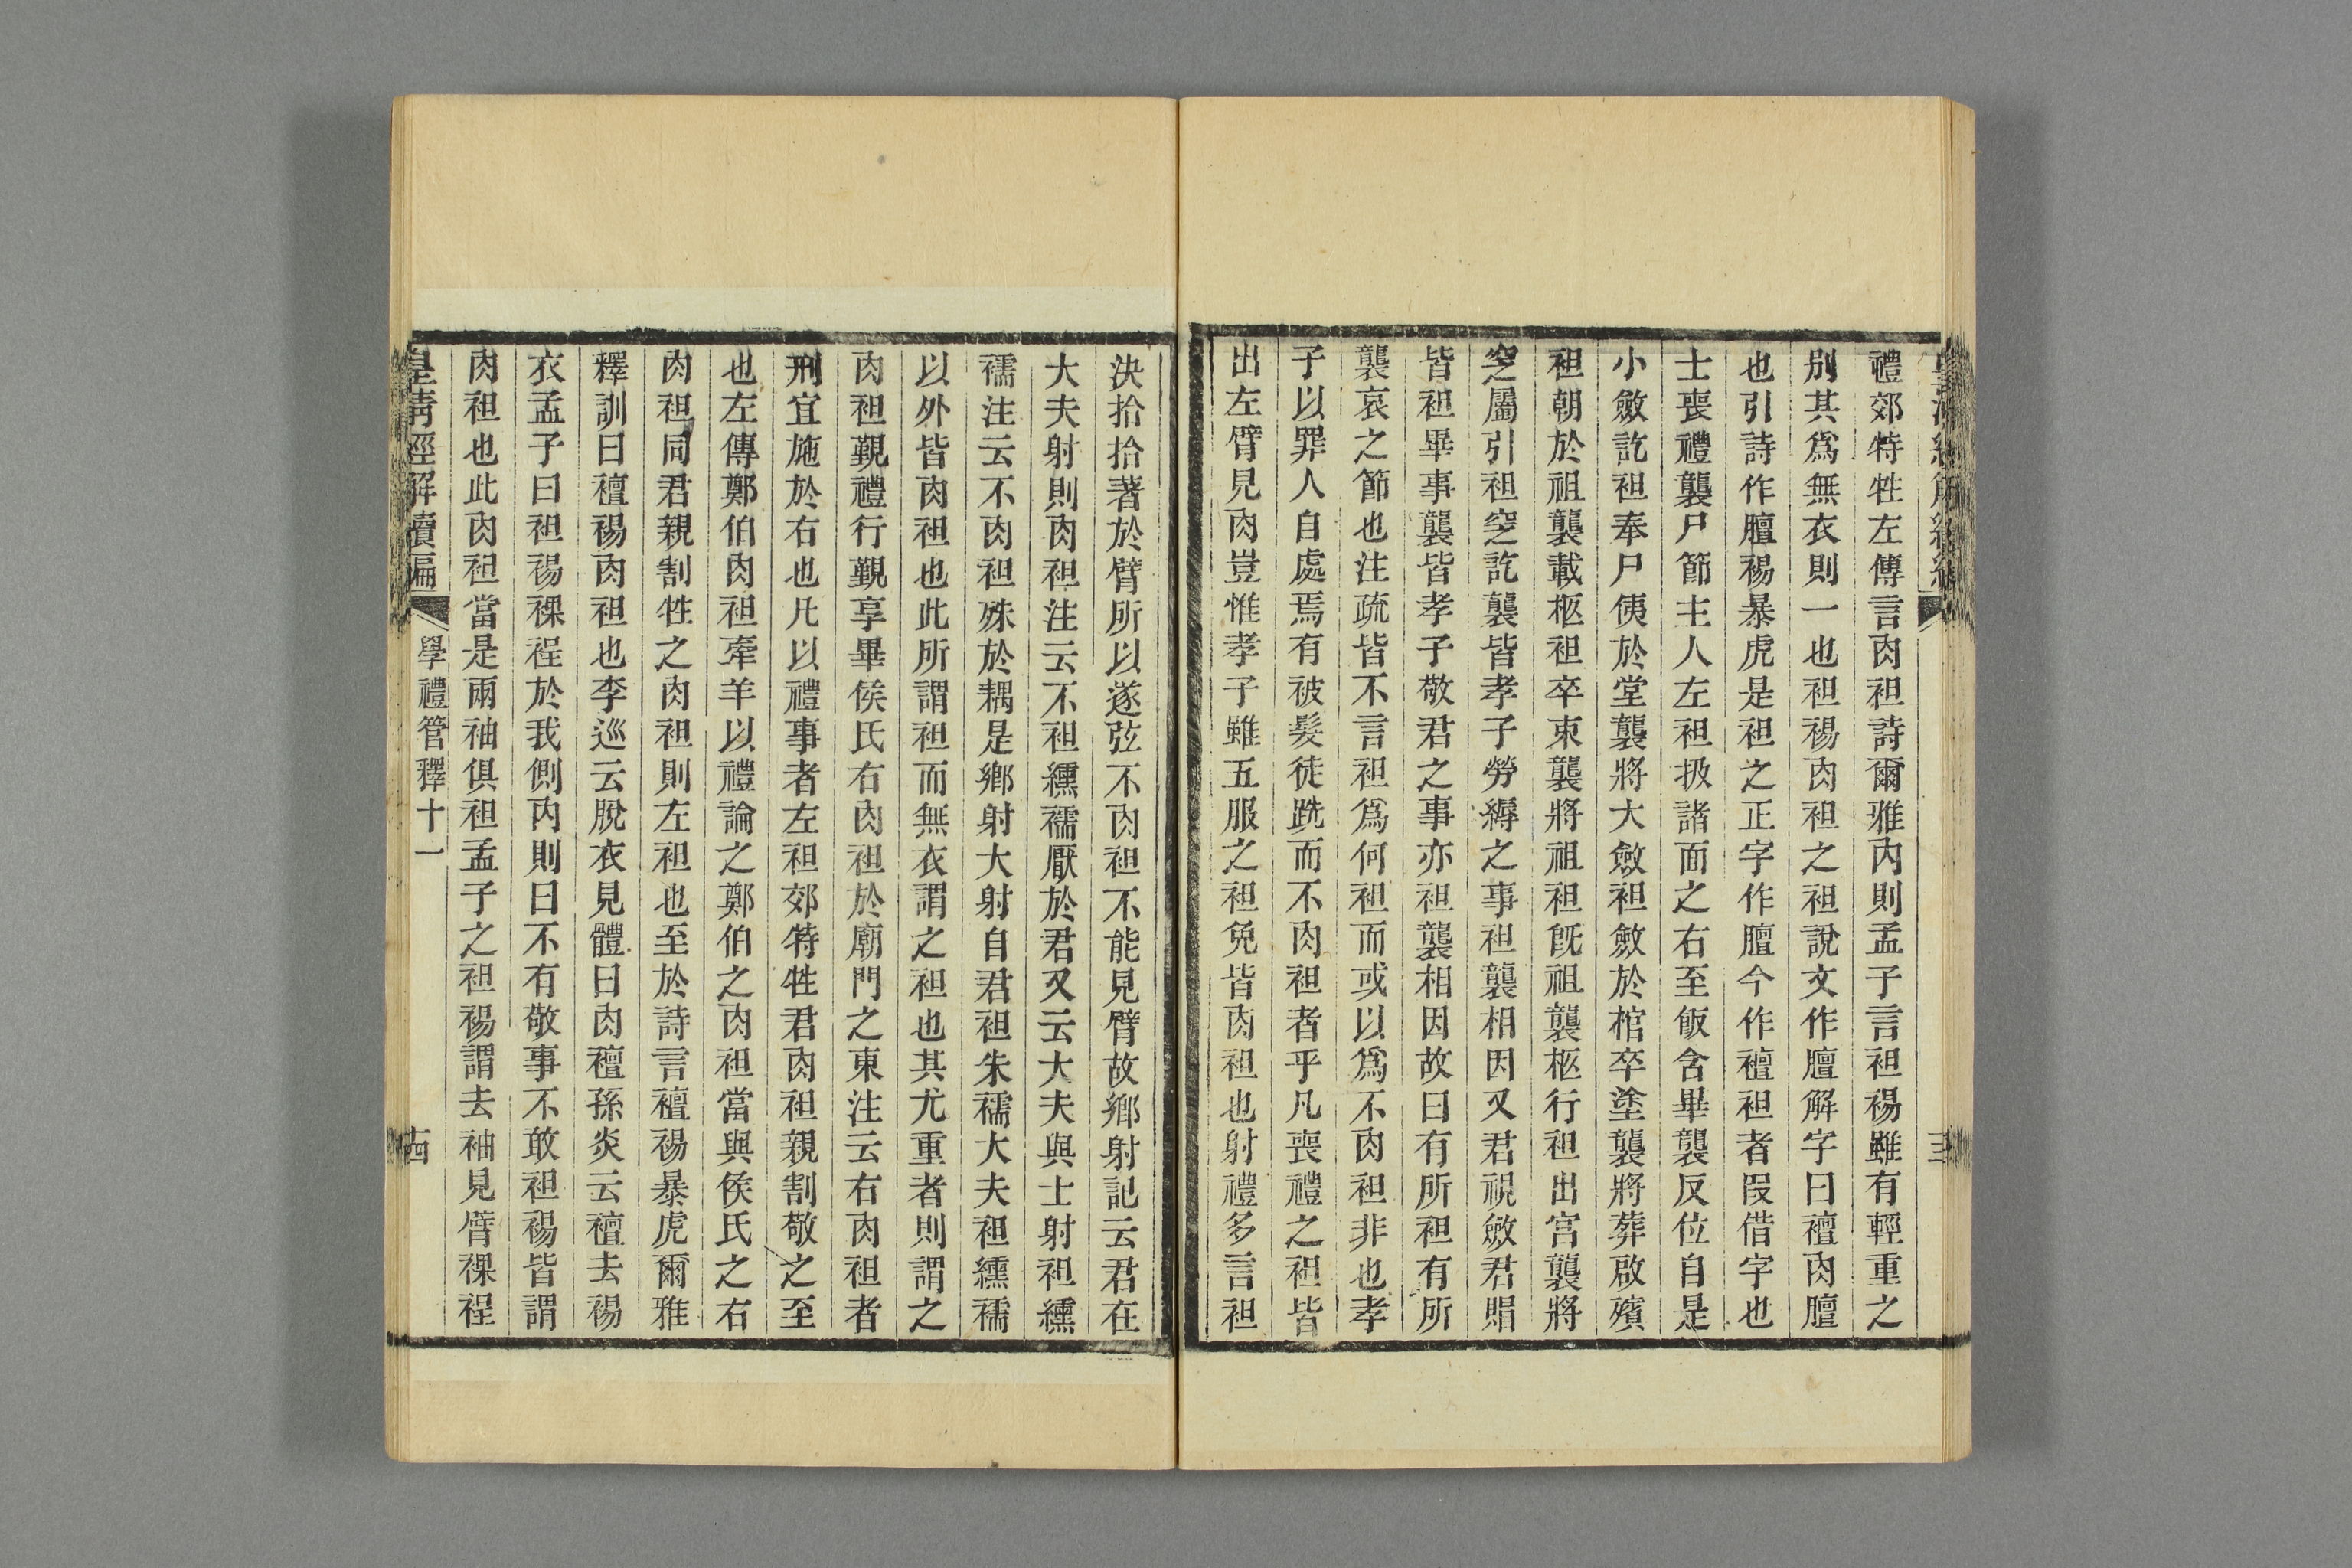 禮郊特牲左傳言肉袒詩爾雅内則孟子言袒裼雖有輕重之
别其爲無衣則一也袒裼肉袒之袒說文作膻解字曰襢肉膻
也引詩作膻裼暴虎是袒之正字作膻今作襢袒者叚借字也
士喪禮襲尸節主人左袒扱諸面之右至飯含畢襲反位自是
小斂訖袒奉尸侇於堂襲將大斂袒斂於棺卒塗襲將葬啟殯
袒朝於祖襲載柩袒卒束襲將祖袒旣祖襲柩行袒出宫襲將
窆屬引袒窆訖襲皆孝子勞縟之事袒襲相因又君視斂君賵
皆袒畢事襲皆孝子敬君之事亦袒襲相因故曰有所袒有所
襲哀之節也注疏皆不言袒爲何袒而或以爲不肉袒非也孝
子以罪人自處焉有被髮徒跣而不肉袒者乎凡喪禮之袒皆
出左臂見肉豈惟孝子雖五服之袒免皆肉袒也射禮多言袒
決拾拾著於臂所以遂弦不肉袒不能見臂故鄉射記云君在
大夫射則肉袒注云不袒纁襦厭於君又云大夫與士射袒纁
襦注云不肉袒殊於耦是鄉射大射自君袒朱襦大夫袒纁襦
以外皆肉袒也此所謂袒而無衣謂之袒也其尤重者則謂之
肉袒覲禮行覲享畢侯氏右肉袒於廟門之東注云右肉袒者
刑宜施於右也凡以禮事者左袒郊特牲君肉袒親割敬之至
也左傳鄭伯肉袒牽羊以禮論之鄭伯之肉袒當與侯氏之右
肉袒同君親割牲之肉袒則左袒也至於詩言襢裼暴虎爾雅
釋訓曰襢裼肉袒也李巡云脫衣見體曰肉襢孫炎云襢去裼
衣孟子曰袒裼裸裎於我側内則曰不有敬事不敢袒裼皆謂
肉袒也此肉袒當是兩袖俱袒孟子之袒裼謂去袖見臂裸裎
皇清經解續編
學禮管釋十一